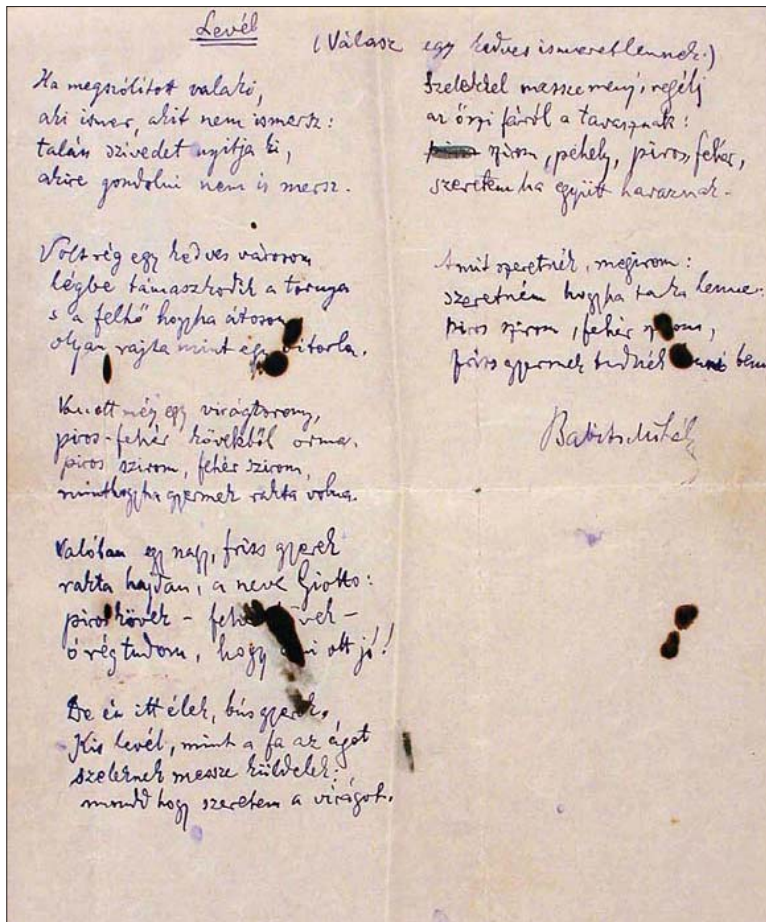 Levél
(Válasz egy kedves ismeretlennek.)
Ha megszólitott valaki,
aki ismer, akit nem ismersz:
talán szivedet nyitja ki,
akire gondolni nem is mersz.
Volt rég egy kedves városom
légbe támaszkodik a tornya
s a felhő hogyha átoson
olyan rajta mint egy vitorla.
Van ott még egy virágtorony,
piros-fehér kövekből orma.
piros szirom, fehér szirom,
minthogyha gyermek rakta volna.
Valóban egy nagy, friss gyerek
rakta hajdan, a neve Giotto:
piros kövek - fehér kövek -
ó rég tudom, hogy ott jó!
De én itt élek, bús gyerek.
Kis levél, mint a fa az ágat
szeleknek messze küldelek:
mondd hogy szeretem a virágot.
Szelekkel messze menj, regélj
az őszi fáról a tavasznak:
szirom, pehely, piros, fehér,
szeretem ha együtt havaznak.
Amit szeretnék, megirom:
szeretném hogyha tarka lenne:
piros szirom, fehér szirom,
friss gyermek tudnék lenni benne
Babits Mihály